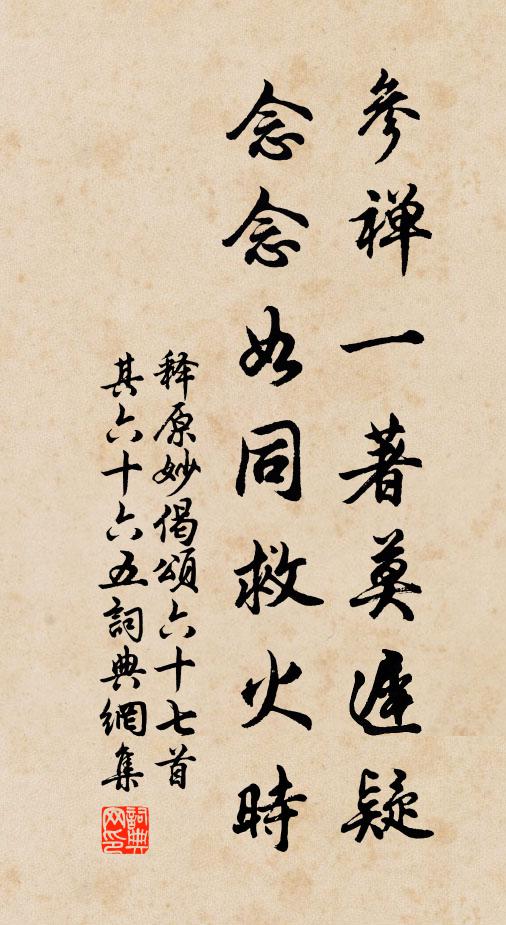 參禪一著莫遲疑
念念如同救火時
释原妙偈頌六十七首
其六十六五詞典網集
詞典网印